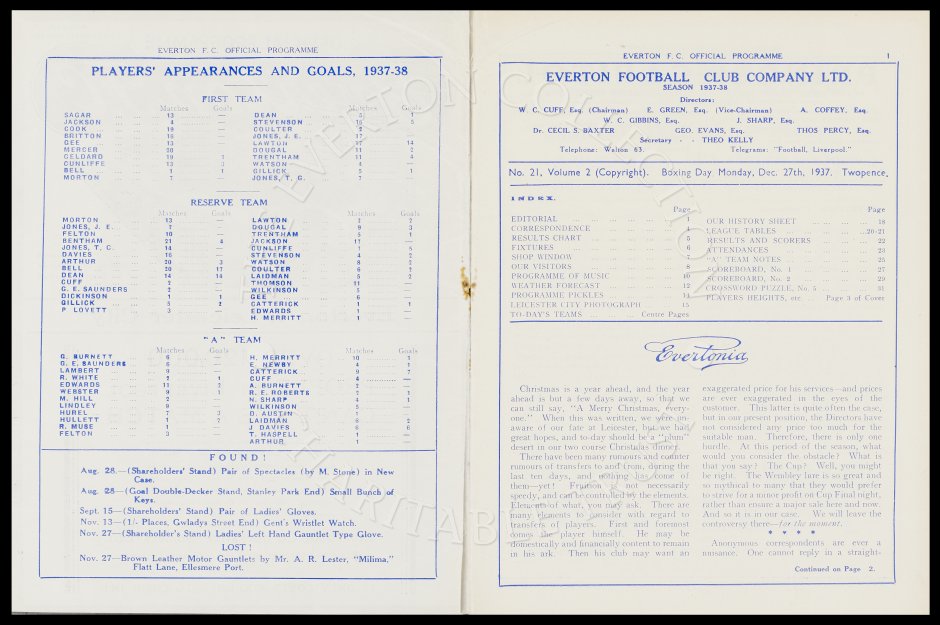 EVERTON F. C. OFFICIAL PROGRAMME
PLAYERS' APPEARANCES AND GOALS, 1937-38
FIRST TEAM
Matches Goals Matches Goals
SAGAR ... 13 — DEAN ... 5 1
JACKSON ... 4 — STEVENSON ... 16 5
COOK ... 19 — COULTER ... 2 —
BRITTON ... 16 — JONES, J. E. ... 17 —
GEE ... 13 — LAWTON ... 17 14
MERCER ... 20 — DOUGAL ... 11 2
GELDARD ... 19 1 TRENTHAM ... 11 4
CUNLIFFE ... 13 3 WATSON ... 4 —
BELL ... 1 1 GILLICK ... 5 1
MORTON ... 7 — JONES, T. G. ... 7 —
RESERVE TEAM
Matches Goals Matches Goals
MORTON ... 13 — LAWTON ... 2 2
JONES, J. E. ... 7 — DOUGAL ... 9 3
FELTON ... 10 — TRENTHAM ... 5 1
BENTHAM ... 21 4 JACKSON ... 17 —
JONES, T. C. ... 14 — CUNLIFFE ... 7 5
DAVIES ... 16 — STEVENSON ... 4 2
ARTHUR ... 20 3 WATSON ... 8 2
BELL ... 20 17 COULTER ... 6 2
DEAN ... 14 14 LAIDMAN ... 5 2
CUFF ... 2 — THOMSON ... 11 —
G. E. SAUNDERS ... 2 — WILKINSON ... 5
DICKINSON ... 1 1 GEE ... 6 —
GILLICK ... 5 2 CATTERICK ... 1 1
P LOVETT ... 3 — EDWARDS ... 1 —
H. MERRITT ... 1
"A" TEAM
Matches Goals Matches Goals
G. BURNETT ... 6 — H. MERRITT ... 10 1
G. E. SAUNDERS ... 6 — E. NEWBY ... 4 1
LAMBERT ... 9 — CATTERICK ... 9 7
R. WHITE ... 2 1 CUFF ... 4
EDWARDS ... 11 2 A. BURNETT ... 2
WEBSTER ... 9 1 R. E. ROBERTS ... 2 1
M. HILL ... 2 — N. SHARP ... 4 1
LINDLEY ... 9 — WILKINSON ... 5
HUREL ... 7 3 D. AUSTIN ... 1
HULLETT ... 1 2 LAIDMAN ... 6 2
R. MUSE ... 1 J DAVIES ... 6 6
FELTON ... 3 T. HASPELL ... 1
ARTHUR
FOUND!
Aug. 28.—(Shareholders' Stand) Pair of Spectacles (by M. Stone) in New
Case.
Aug. 28—(Goal Double-Decker Stand, Stanley Park End) Small Bunch of
Keys.
Sept. 15—(Shareholders' Stand) Pair of Ladies' Gloves.
Nov. 13—(1/- Places, Gwladys Street End) Gent's Wristlet Watch.
Nov. 27—(Shareholder's Stand) Ladies' Left Hand Gauntlet Type Glove.
LOST!
Nov. 27—Brown Leather Motor Gauntlets by Mr. A. R. Lester, "Milima,"
Flatt Lane, Ellesmere Port.
EVERTON F. C. OFFICIAL PROGRAMME 1
EVERTON FOOTBALL CLUB COMPANY LTD.
SEASON 1937-38
Directors:
W. C. CUFF, Esq. (Chairman) E. GREEN, Esq. (Vice-Chairman) A. COFFEY, Esq.
W. C. GIBBINS, Esq. J. SHARP, Esq.
Dr. CECIL S. BAXTER GEO. EVANS, Esq. THOS PERCY, Esq.
Secretary - - THEO KELLY
Telephone: Walton 63. Telegrams: "Football, Liverpool."
No. 21, Volume 2 (Copyright). Boxing Day Monday, Dec. 27th, 1937. Twopence.
INDEX.
Page
EDITORIAL ... 1
CORRESPONDENCE ... 4
RESULTS CHART ... 5
FIXTURES ... 6
SHOP WINDOW ... 7
OUR VISITORS ... 8
PROGRAMME OF MUSIC ... 10
WEATHER FORECAST ... 12
PROGRAMME PICKLES ... 14
LEICESTER CITY PHOTOGRAPH ... 15
TO-DAY'S TEAMS ... Centre Pages
Page
OUR HISTORY SHEET ... 18
LEAGUE TABLES ... 20-21
RESULTS AND SCORERS ... 22
ATTENDANCES ... 23
"A" TEAM NOTES ... 25
SCOREBOARD, No. 1 ... 27
SCOREBOARD, No. 2 ... 29
CROSSWORD PUZZLE, No. 5 ... 31
PLAYERS HEIGHTS, etc ... Page 3 of Cover
Evertonia
Christmas is a year ahead, and the year
ahead is but a few days away, so that we
can still say, "A Merry Christmas, every-
one." When this was written, we were un-
aware of our fate at Leicester, but we had
great hopes, and to-day should be a "plum"
desert in our two course Christmas dinner.
There have been many rumours and counter
rumours of transfers to and from, during the
last ten days, and nothing has come of
them—yet! Fruition is not necessarily
speedy, and can be controlled by the elements.
Elements of what, you may ask. There are
many elements to consider with regard to
transfers of players. First and foremost
comes the player himself. He may be
domestically and financially content to remain
in his ark. Then his club may want an
exaggerated price for his services—and prices
are ever exaggerated in the eyes of the
customer. This latter is quite often the case,
but in our present position, the Directors have
not considered any price too much for the
suitable man. Therefore, there is only one
hurdle. At this period of the season, what
would you consider the obstacle? What is
that you say? The Cup? Well, you might
be right. The Wembley lure is so great and
so mythical to many that they would prefer
to strive for a minor profit on Cup Final night,
rather than ensure a major sale here and now.
And so it is in our case. We will leave the
controversy there—for the moment.
* * * * *
Anonymous correspondents are ever a
nuisance. One cannot reply in a straight-
Continued on Page 2.
EVERTON COLLECTION CHARITABLE